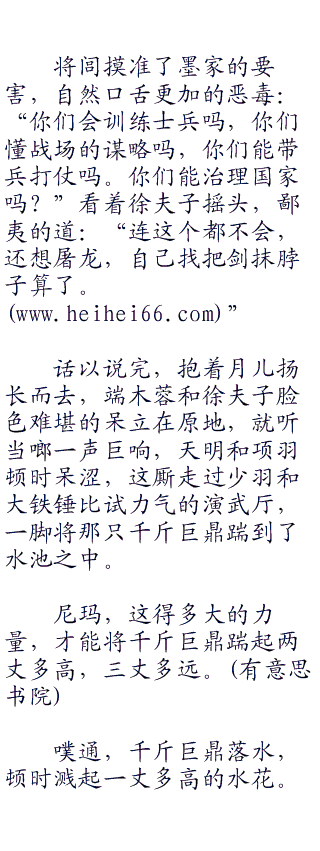 将闾摸准了墨家的要
害，自然口舌更加的恶毒：
“你们会训练士兵吗，你们
懂战场的谋略吗，你们能带
兵打仗吗。你们能治理国家
吗？”看着徐夫子摇头，鄙
夷的道：“连这个都不会，
还想屠龙，自己找把剑抹脖
子算了。
(www.heihei66.com)”
话以说完，抱着月儿扬
长而去，端木蓉和徐夫子脸
色难堪的呆立在原地，就听
当啷一声巨响，天明和项羽
顿时呆涩，这厮走过少羽和
大铁锤比试力气的演武厅，
一脚将那只千斤巨鼎踹到了
水池之中。
尼玛，这得多大的力
量，才能将千斤巨鼎踹起两
丈多高，三丈多远。(有意思
书院)
噗通，千斤巨鼎落水，
顿时溅起一丈多高的水花。